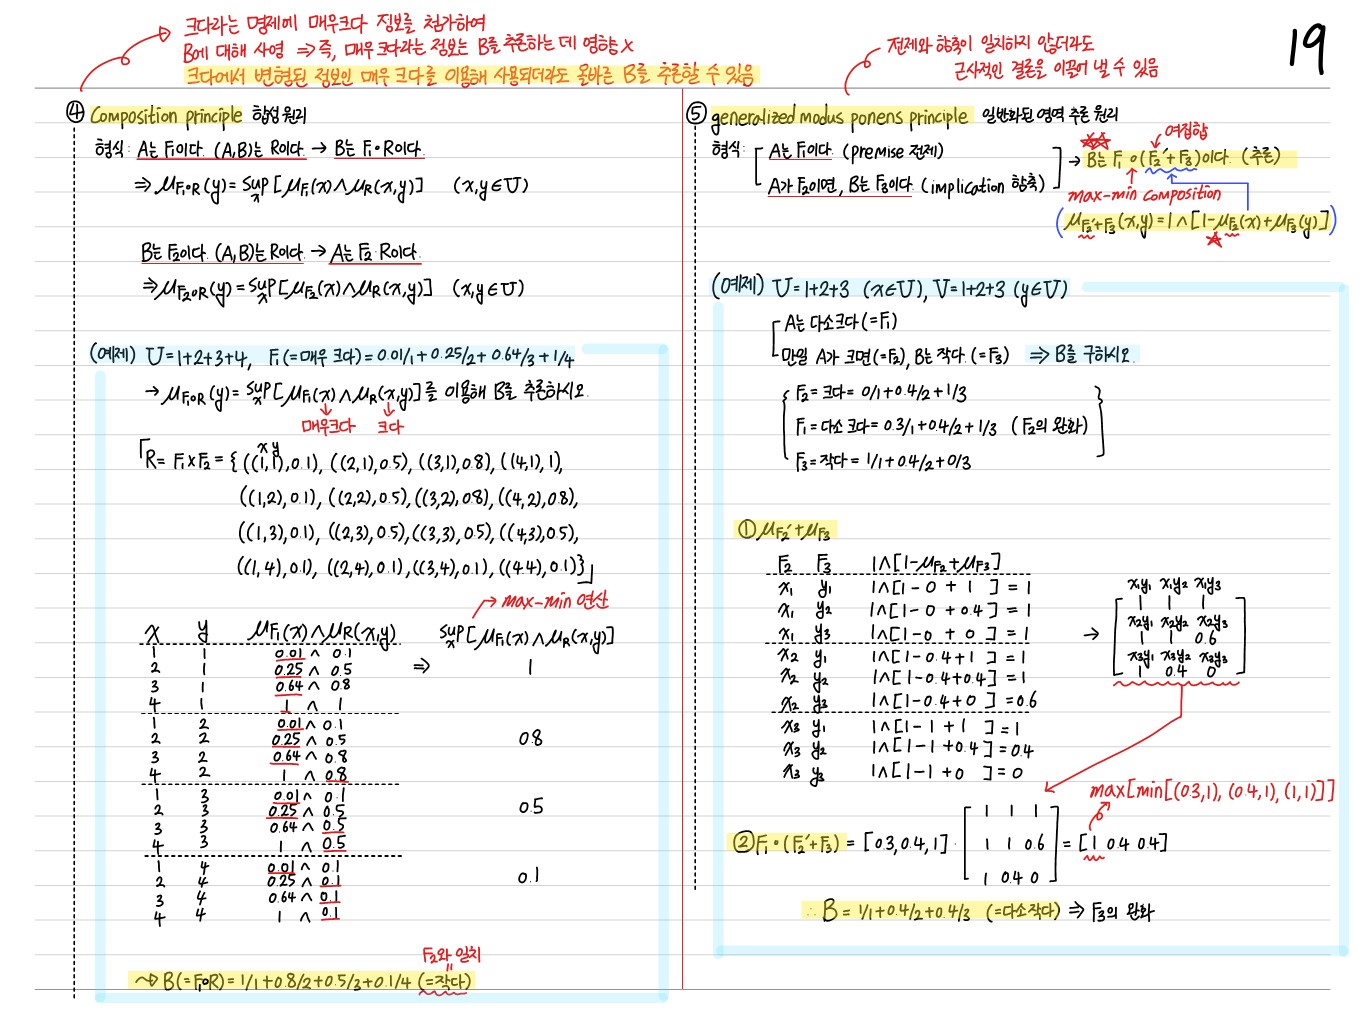 19
크다라는 명제에 매우크다 정보를 첨가하여
B에 대해 사영 ⇒ 즉, 매우 크다라는 정보는 B를 추론하는 데 영향 X
크다에서 변형된 정보인 매우 크다를 이용해 사용되더라도 올바른 B를 추론할 수 있음
④ Composition principle 합성 원리
형식: A는 F₁이다. (A,B)는 R이다 → B는 F₁∘R이다.
⇒ μF₁∘R(y) = sup x [μF₁(x) ∧ μR(x,y)] (x,y∈U)
B는 F₂이다. (A,B)는 R이다 → A는 F₂·R이다.
⇒ μF₂∘R(y) = sup x [μF₂(x) ∧ μR(x,y)] (x,y∈U)
(예제) U = 1+2+3+4, F₁(=매우 크다) = 0.01/1 + 0.25/2 + 0.64/3 + 1/4
→ μF₁∘R(y) = sup x [μF₁(x) ∧ μR(x,y)]를 이용해 B를 추론하시오.
매우크다 크다
x y
R = F₁×F₂ = { ((1,1),0.1), ((2,1),0.5), ((3,1),0.8), ((4,1),1),
((1,2),0.1), ((2,2),0.5), ((3,2),0.8), ((4,2),0.8),
((1,3),0.1), ((2,3),0.5), ((3,3),0.5), ((4,3),0.5),
((1,4),0.1), ((2,4),0.1), ((3,4),0.1), ((4,4),0.1)}
→ max-min 연산
x y μF₁(x) ∧ μR(x,y) sup x [μF₁(x) ∧ μR(x,y)]
1 1 0.01 ∧ 0.1
2 1 0.25 ∧ 0.5 ⇒ 1
3 1 0.64 ∧ 0.8
4 1 1 ∧ 1
1 2 0.01 ∧ 0.1
2 2 0.25 ∧ 0.5 0.8
3 2 0.64 ∧ 0.8
4 2 1 ∧ 0.8
1 3 0.01 ∧ 0.1
2 3 0.25 ∧ 0.5 0.5
3 3 0.64 ∧ 0.5
4 3 1 ∧ 0.5
1 4 0.01 ∧ 0.1
2 4 0.25 ∧ 0.1 0.1
3 4 0.64 ∧ 0.1
4 4 1 ∧ 0.1
F₂와 일치
↝ B(=F₁∘R) = 1/1 + 0.8/2 + 0.5/3 + 0.1/4 (=작다)
전제와 함축이 일치하지 않더라도
근사적인 결론을 이끌어 낼 수 있음
⑤ generalized modus ponens principle 일반화된 영역 추론 원리
여집합
형식: A는 F₁이다 (premise 전제)
→ B는 F₁∘(F₂′+F₃)이다. (추론)
A가 F₂이면, B는 F₃이다. (implication 함축)
max-min composition
(μF₂′+F₃(x,y) = 1 ∧ [1-μF₂(x)+μF₃(y)])
(예제) U = 1+2+3 (x∈U), V = 1+2+3 (y∈U)
A는 다소크다 (=F₁)
만일 A가 크면 (=F₂), B는 작다 (=F₃) ⇒ B를 구하시오.
F₂ = 크다 = 0/1 + 0.4/2 + 1/3
F₁ = 다소 크다 = 0.3/1 + 0.4/2 + 1/3 (F₂의 완화)
F₃ = 작다 = 1/1 + 0.4/2 + 0/3
① μF₂′ + μF₃
F₂ F₃ 1∧[1-μF₂+μF₃]
x₁ y₁ 1∧[1-0+1] = 1
x₁ y₂ 1∧[1-0+0.4] = 1
x₁ y₃ 1∧[1-0+0] = 1
x₂ y₁ 1∧[1-0.4+1] = 1
x₂ y₂ 1∧[1-0.4+0.4] = 1
x₂ y₃ 1∧[1-0.4+0] = 0.6
x₃ y₁ 1∧[1-1+1] = 1
x₃ y₂ 1∧[1-1+0.4] = 0.4
x₃ y₃ 1∧[1-1+0] = 0
→
x₁y₁ x₁y₂ x₁y₃
1 1 1
x₂y₁ x₂y₂ x₂y₃
1 1 0.6
x₃y₁ x₃y₂ x₃y₃
1 0.4 0
max[min[(0.3,1), (0.4,1), (1,1)]]
1 1 1
② F₁∘(F₂′+F₃) = [0.3, 0.4, 1] · 1 1 0.6 = [1 0.4 0.4]
1 0.4 0
∴ B = 1/1 + 0.4/2 + 0.4/3 (=다소작다) ⇒ F₃의 완화